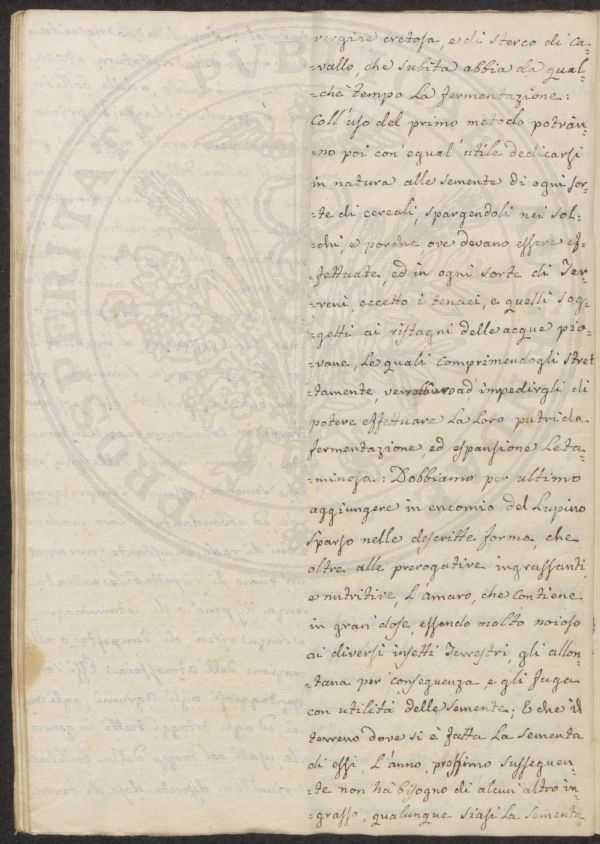 vergine cretosa, e di sterco di Ca-
vallo, che subita abbia da qual-
-che tempo La fermentazione:
Coll'uso del primo metodo potran-
-no poi con egual utile dedicarsi
in natura alle semente di ogni sor-
-te di cereali, spargendoli nei sol-
-chi, e porche, ove devano essere ef-
-fettuate, ed in ogni sorte di Ter-
-reni, eccetto i tenaci, e quelli sog-
-getti ai ristagni delle acque pio-
-vane, Le quali comprimendogli stret
-tamente, verrebbero ad impedirgli di
potere effettuare La Loro putrida
fermentazione, ed espansione Leta-
-minosa: Dobbiamo per ultimo
aggiungere in encomio del Lupino
sparso nelle descritte forme, che
oltre alle prerogative ingrassanti,
e nutritive, L'amaro, che contiene
in gran dose, essendo molto noioso
ai diversi insetti Terrestri, gli allon-
-tana per conseguenza, e gli fuga
con utilità delle semente; E che il
terreno dove si è fatta La sementa
di essi, L'anno prossimo susseguen-
-te non hà bisogno di alcun altro in-
-grasso, qualunque siasi La sementa
PROSPERITATI PUB